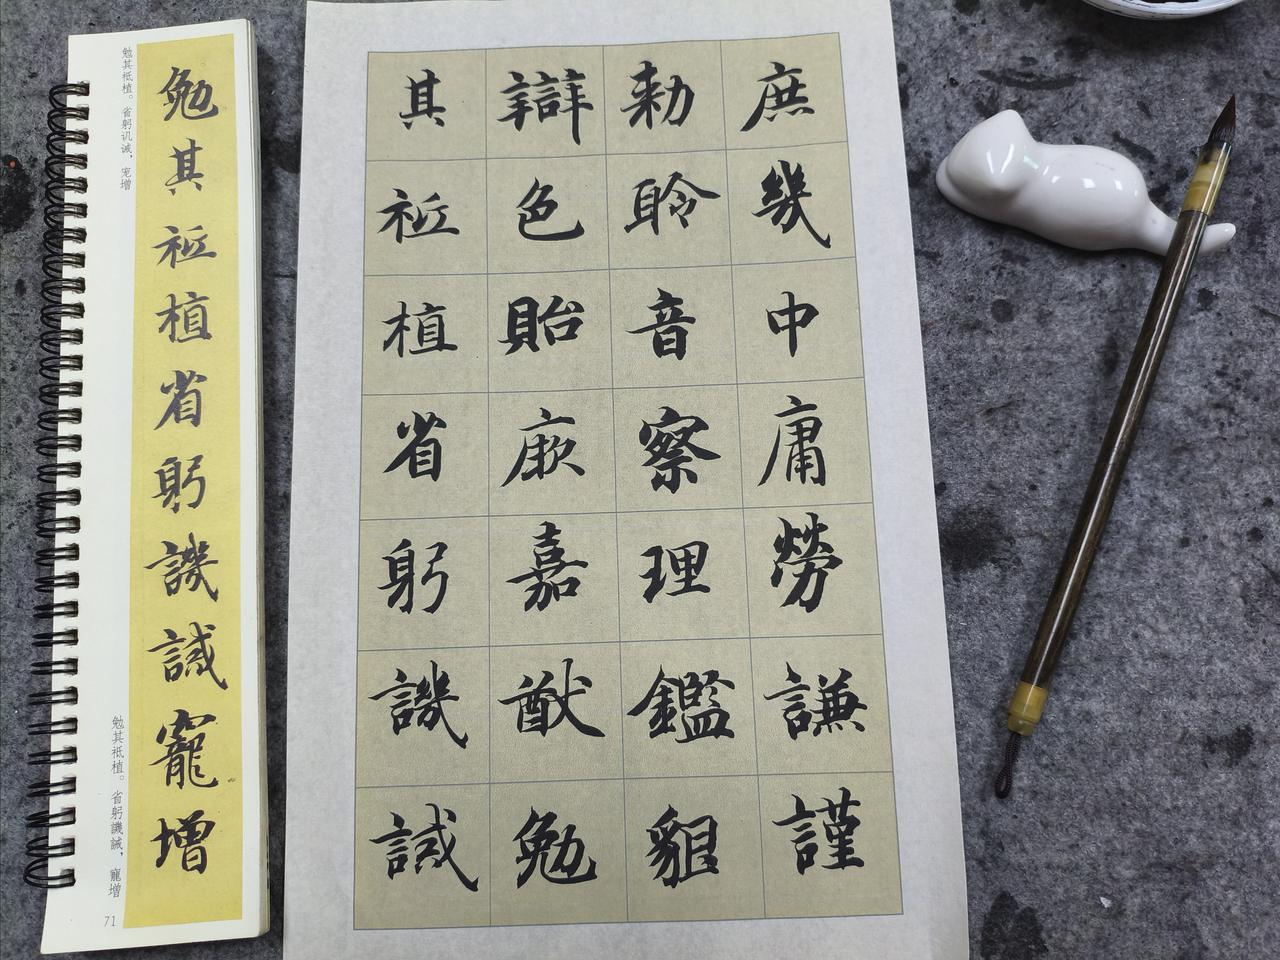 庶幾中庸勞謙謹
勅聆音察理鑑貌
辯色貽厥嘉猷勉
其祗植省躬譏誡
勉其祗植省躬譏誡寵增
勉其祗植。省躬讥诫，宠增
勉其祗植。省躬譏誡，寵增
71